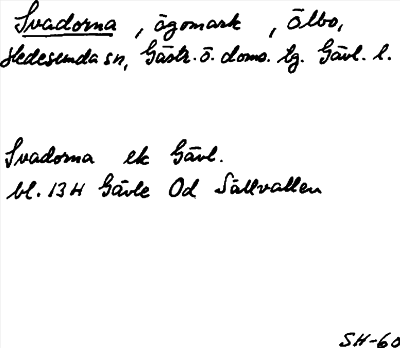 Svadorna , ägomark , Ölbo,
Hedesunda sn, Gästr. ö. doms. tg. Gävl. l.
Svadorna ek Gävl.
bl. 13 H Gävle 0d Sällvallen
SH-60